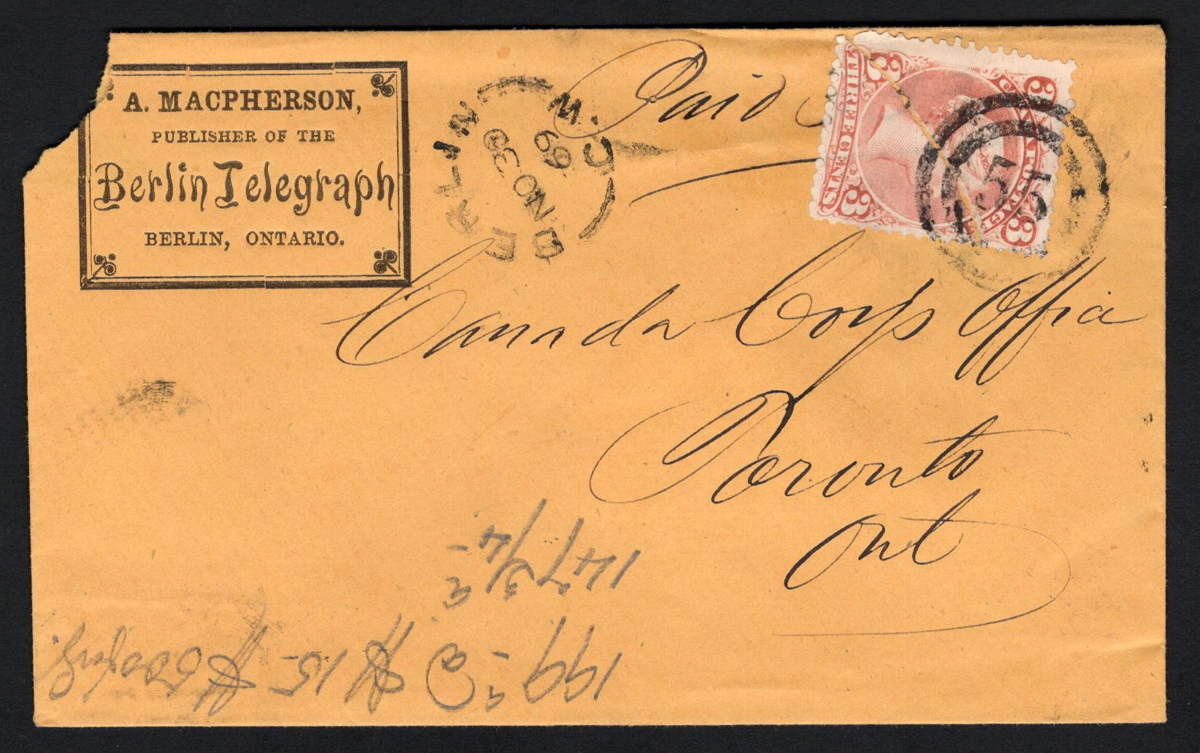 A. MACPHERSON,
PUBLISHER OF THE
Berlin Telegraph
BERLIN, ONTARIO.
BERLIN
C. W
NO 30
69
Paid
3 3
THREE CENTS
3 3
55
Canada Corps Office
Toronto
Ont
147 3/4
199 @ $15